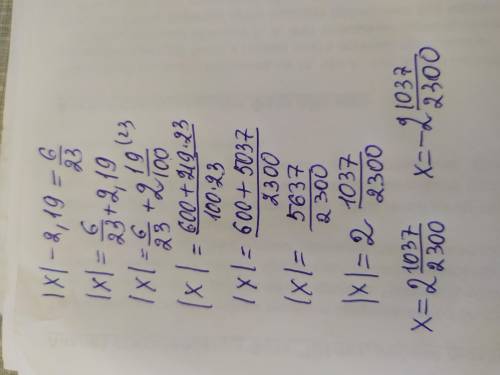 |x| - 2,19 = 6/23
|x| = 6/23 + 2,19
|x| = 6/23 + 2 19/100 (23
|x| = (600 + 219·23)/(100·23)
|x| = (600 + 5037)/2300
|x| = 5637/2300
|x| = 2 1037/2300
x = 2 1037/2300 x = -2 1037/2300